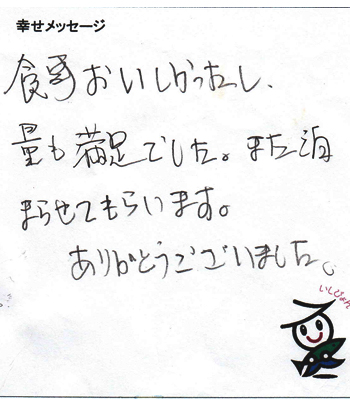 幸せメッセージ
食事おいしかったし、
量も満足でした。また泊
まらせてもらいます。
ありがとうございました。
いしぴょん